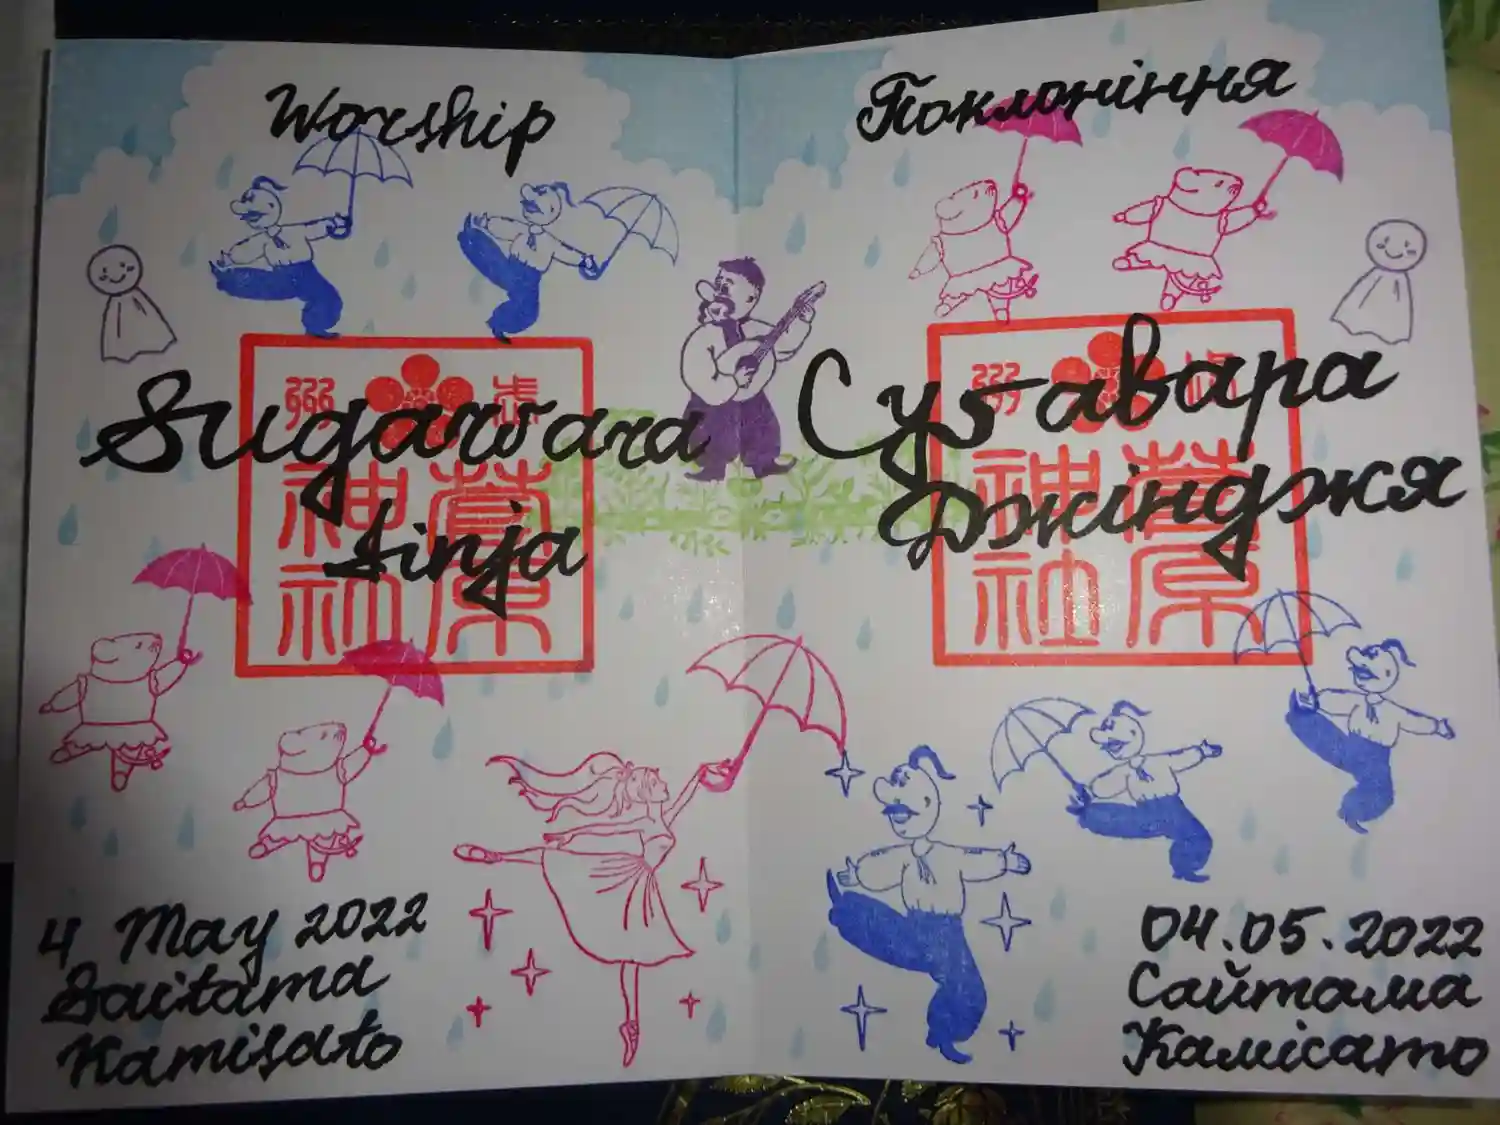 Worship
Sugawara
Jinja
4 May 2022
Saitama
Kamisato
Поклоніння
Сугавара
Джінджя
04.05.2022
Сайтама
Камісато
菅原
神社
菅原
神社